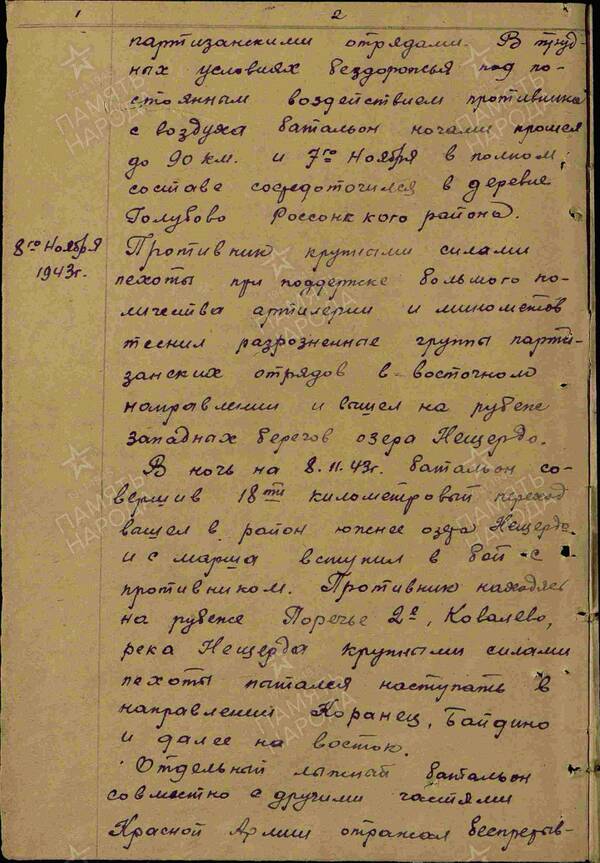 1 2
партизанскими отрядами. В труд-
ных условиях бездорожья под по-
стоянным воздействием противника
с воздуха батальон ночами прошел
до 90 км. и 7го Ноября в полном
составе сосредоточился в деревне
Голубово Россонкского района.
8го Ноября
1943г.
Противник крупными силами
пехоты при поддержке большого ко-
личества артилерии и минометов
теснил разрозненные группы парти-
занских отрядов в восточном
направлении и вышел на рубеже
западных берегов озера Нещердо.
В ночь на 8.11.43г. батальон со-
вершив 18ти километровый переход
вышел в район южнее озера Нещердо
и с марша вступил в бой с
противником. Противник находясь
на рубеже Поречье 2е, Ковалево,
река Нещерда крупными силами
пехоты пытался наступать в
направлении Коранец, Байдино
и далее на восток.
Отдельный лыжный батальон
совместно с другими частями
Красной Армии отражал беспрерыв-
ПАМЯТЬ
НАРОДА